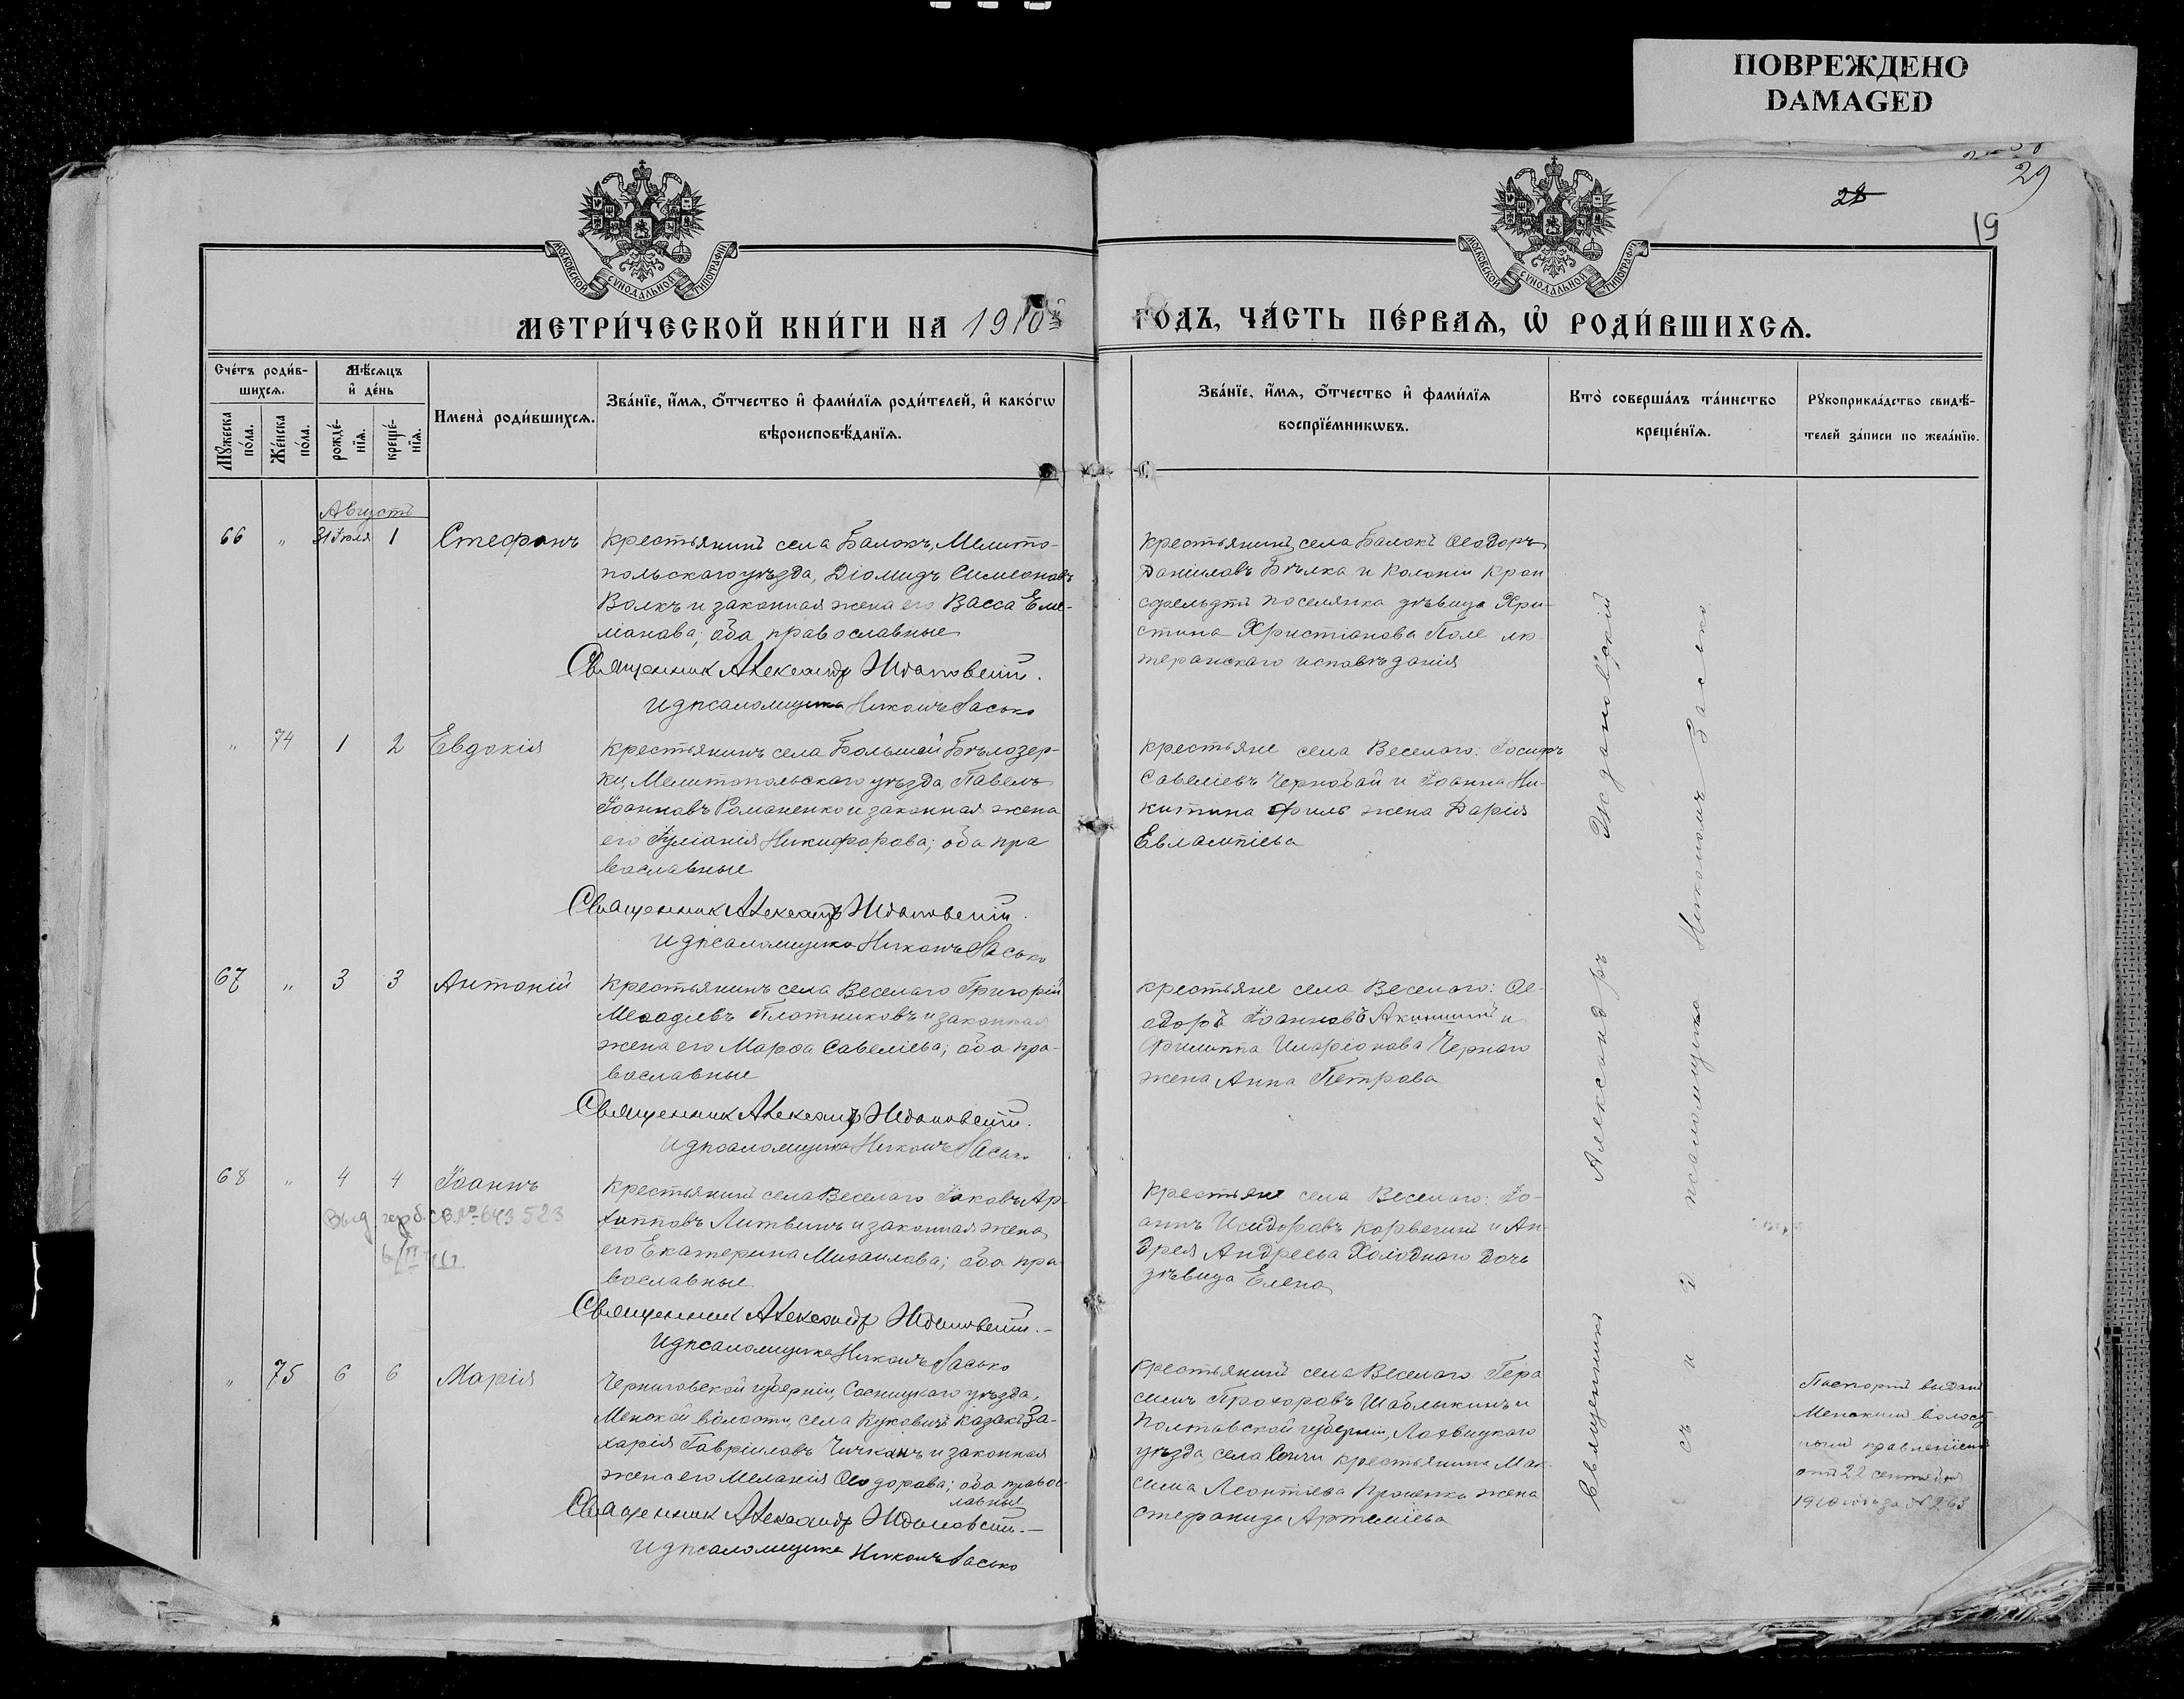 ПОВРЕЖДЕНО
DAMAGED
29
28
19
МОСКОВСКОЙ СУНОДАЛЬНОЙ ТИПОГРАФІИ
МОСКОВСКОЙ СУНОДАЛЬНОЙ ТИПОГРАФІИ
МЕТРИ́ЧЕСКОЙ КНИ́ГИ НА 1910й
ГО́ДЪ, ЧА́СТЬ ПЕ́РВАѦ, Ѡ҆ РОДИ́ВШИХСѦ.
Сче́тъ роди́в-
шихсѧ.
Мꙋ́жеска
по́ла.
Же́нска
по́ла.
Мѣ́сѧцъ
и҆ де́нь
рожде́-
нїѧ.
креще́-
нїѧ.
Имена̀ роди́вшихсѧ.
Зва́нїе, и҆́мѧ, ѻ҆́тчество и҆ фами́лїѧ роди́телей, и҆ како́гѡ
вѣроисповѣ́данїѧ.
Зва́нїе, и҆́мѧ, ѻ҆́тчество и҆ фами́лїѧ
воспрїе́мникѡвъ.
Кто̀ соверша́лъ та́инство
креще́нїѧ.
Рꙋкоприкла́дство свидѣ́-
телей за́писи по жела́нїю.
Августъ
66 „ 31 Іюля 1 Стефанъ
Крестьянинъ села Балокъ, Мелито-
польскаго уѣзда, Діомидъ Симеоновъ
Волкъ и законная жена его Васса Еме-
ліанова; оба православные
Священник Александр Ждановскій.
и д псаломщика Никонъ Засько
Крестьянинъ села Балокъ Ѳеодоръ
Даніиловъ Бѣлка и Колоніи Крон
сфельдтъ поселянка дѣвица Хри-
стина Христіанова Поле лю-
теранскаго исповѣданія
„ 74 1 2 Евдокія
Крестьянинъ села Большой Бѣлозер-
ки, Мелитопольскаго уѣзда, Павелъ
Іоанновъ Романенко и законная жена
его Іуліанія Никифорова; оба пра
вославные
Священник Александр Ждановскій.
и д псаломщика Никонъ Засько
Крестьяне села Веселаго: Іосифъ
Савеліевъ Чернобай и Іоанна Ни-
китина жена Дарія
Евлампіева
67 „ 3 3 Антоній
Крестьянинъ села Веселаго Григорій
Меѳодіевъ Плотниковъ и законная
жена его Марѳа Савеліева; оба пра-
вославные
Священник Александр Ждановскій.
и д псаломщика Никонъ Засько
Крестьяне села Веселаго: Ѳе-
одоръ Іоанновъ Акишинъ и
Филиппа Иларіонова Чернаго
жена Анна Петрова
68 „ 4 4 Іоаннъ
Выд. герб. св. № 643523
6/II
Крестьянинъ села Веселаго Іаковъ Ар-
хипповъ Литвинъ и законная жена
его Екатерина Михаилова; оба пра-
вославные
Священник Александр Ждановскій.—
и д псаломщика Никонъ Засько
Крестьяне села Веселаго: Іо-
аннъ Исидоровъ и Ан-
дрея Андреева Холоднаго дочь
дѣвица Елена
„ 75 6 6 Марія
Черниговской губерніи, Сосницкаго уѣзда,
Менской волости, села Куковичъ казакъ За-
харія Гавріиловъ Чичканъ и законная
жена его Меланія Ѳеодорова; оба правос-
лавные
Священник Александр Ждановскій.—
и д псаломщика Никонъ Засько
Крестьянинъ села Веселаго Гера
симъ Прохоровъ Шаблыкинъ и
Полтавской губерніи, Лохвицкаго
уѣзда, села Сенчи крестьянина Мак-
сима Леонтіева Проценка жена
Стефанида Артеміева
Паспортъ выданъ
Менскимъ волост-
нымъ правленіемъ
отъ 22 сентября
1910 года за № 263
Священникъ Александръ Ждановскій
съ и д псаломщика Никономъ Засько